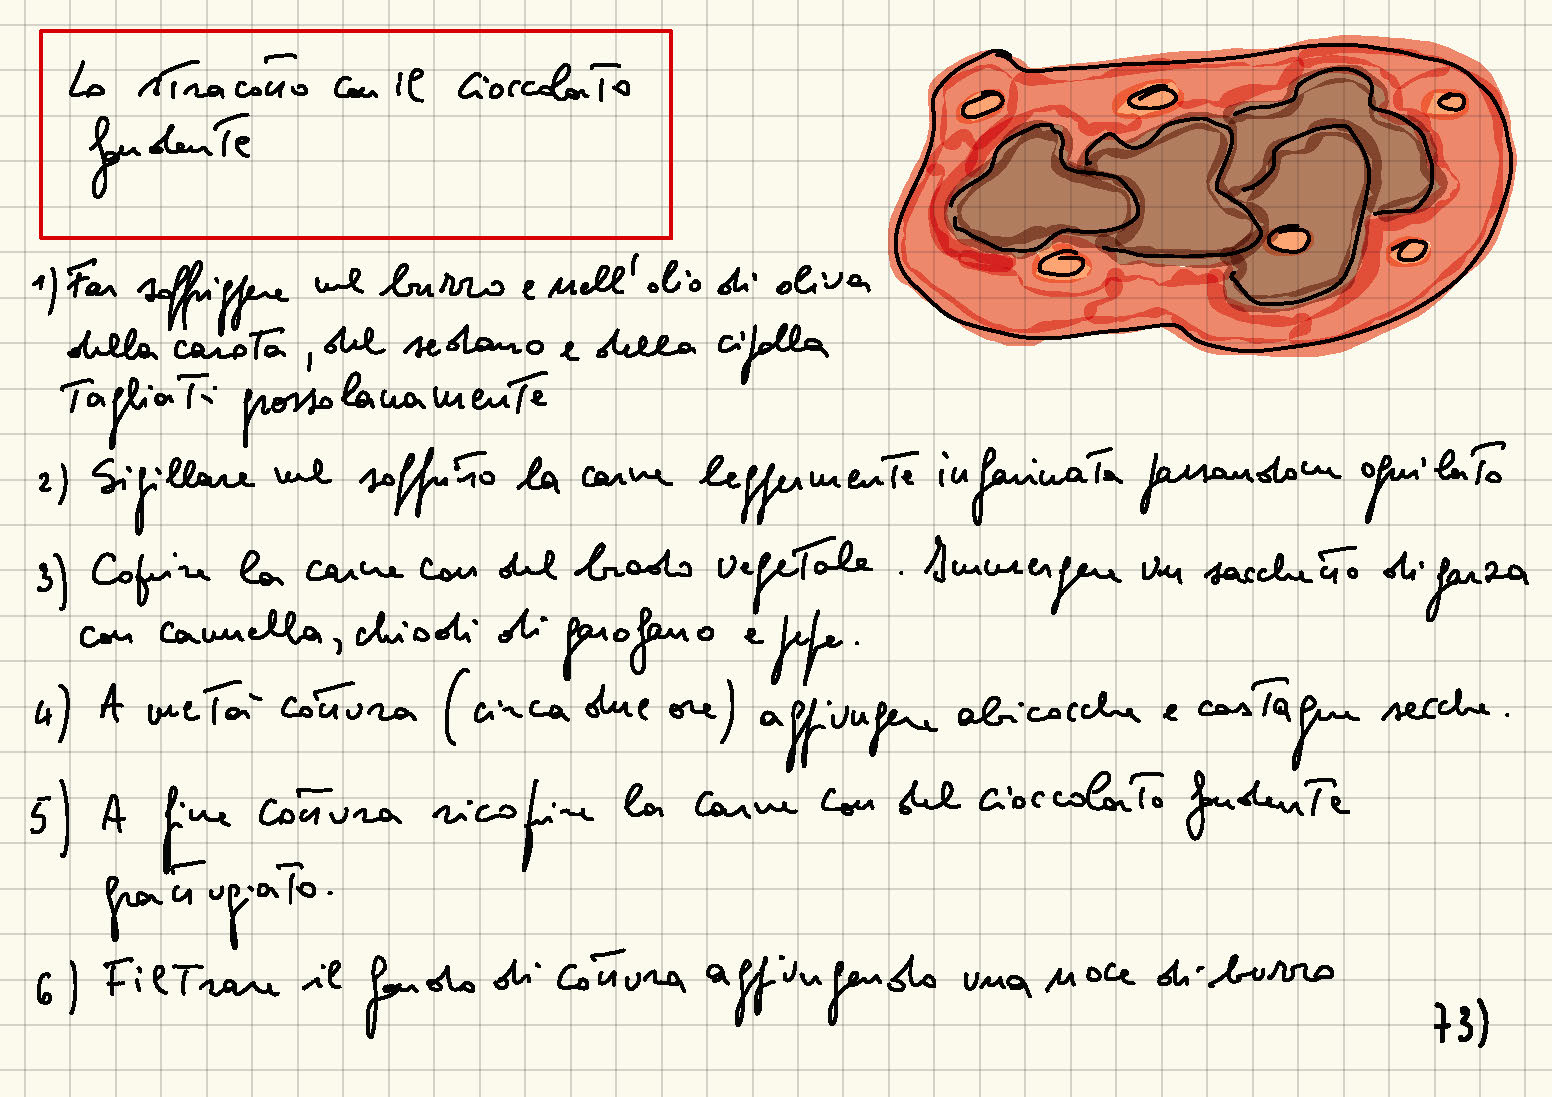 Lo stracotto con il cioccolato
fondente
1) Far soffriggere nel burro e nell'olio di oliva
della carota, del sedano e della cipolla
tagliati grossolanamente
2) Sigillare nel soffritto la carne leggermente infarinata passandola su ogni lato
3) Coprire la carne con del brodo vegetale. Immergere un sacchetto di garza
con cannella, chiodi di garofano e pepe.
4) A metà cottura (circa due ore) aggiungere albicocche e castagne secche.
5) A fine cottura ricoprire la carne con del cioccolato fondente
grattugiato.
6) Filtrare il fondo di cottura aggiungendo una noce di burro
73)